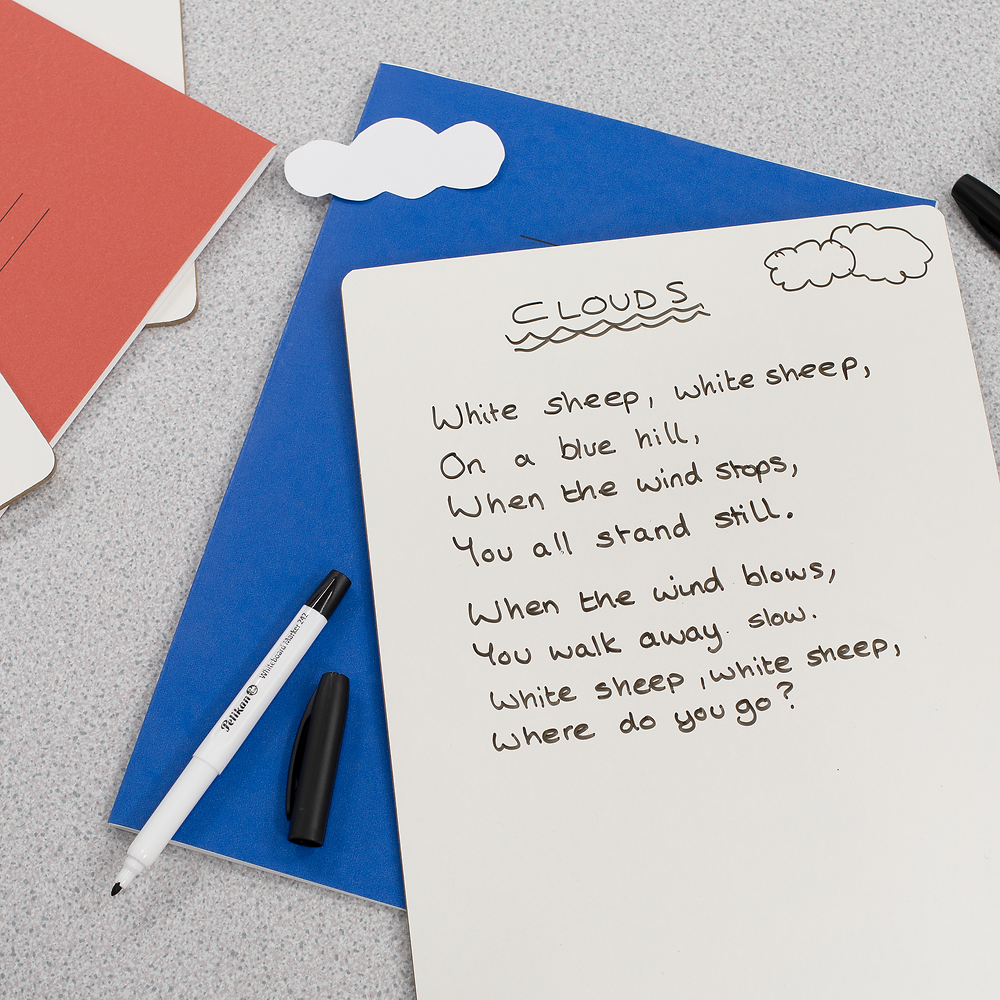 CLOUDS
White sheep, white sheep,
On a blue hill,
When the wind stops,
You all stand still.
When the wind blows,
You walk away slow.
White sheep, white sheep,
Where do you go?
Pelikan Whiteboard Marker 242